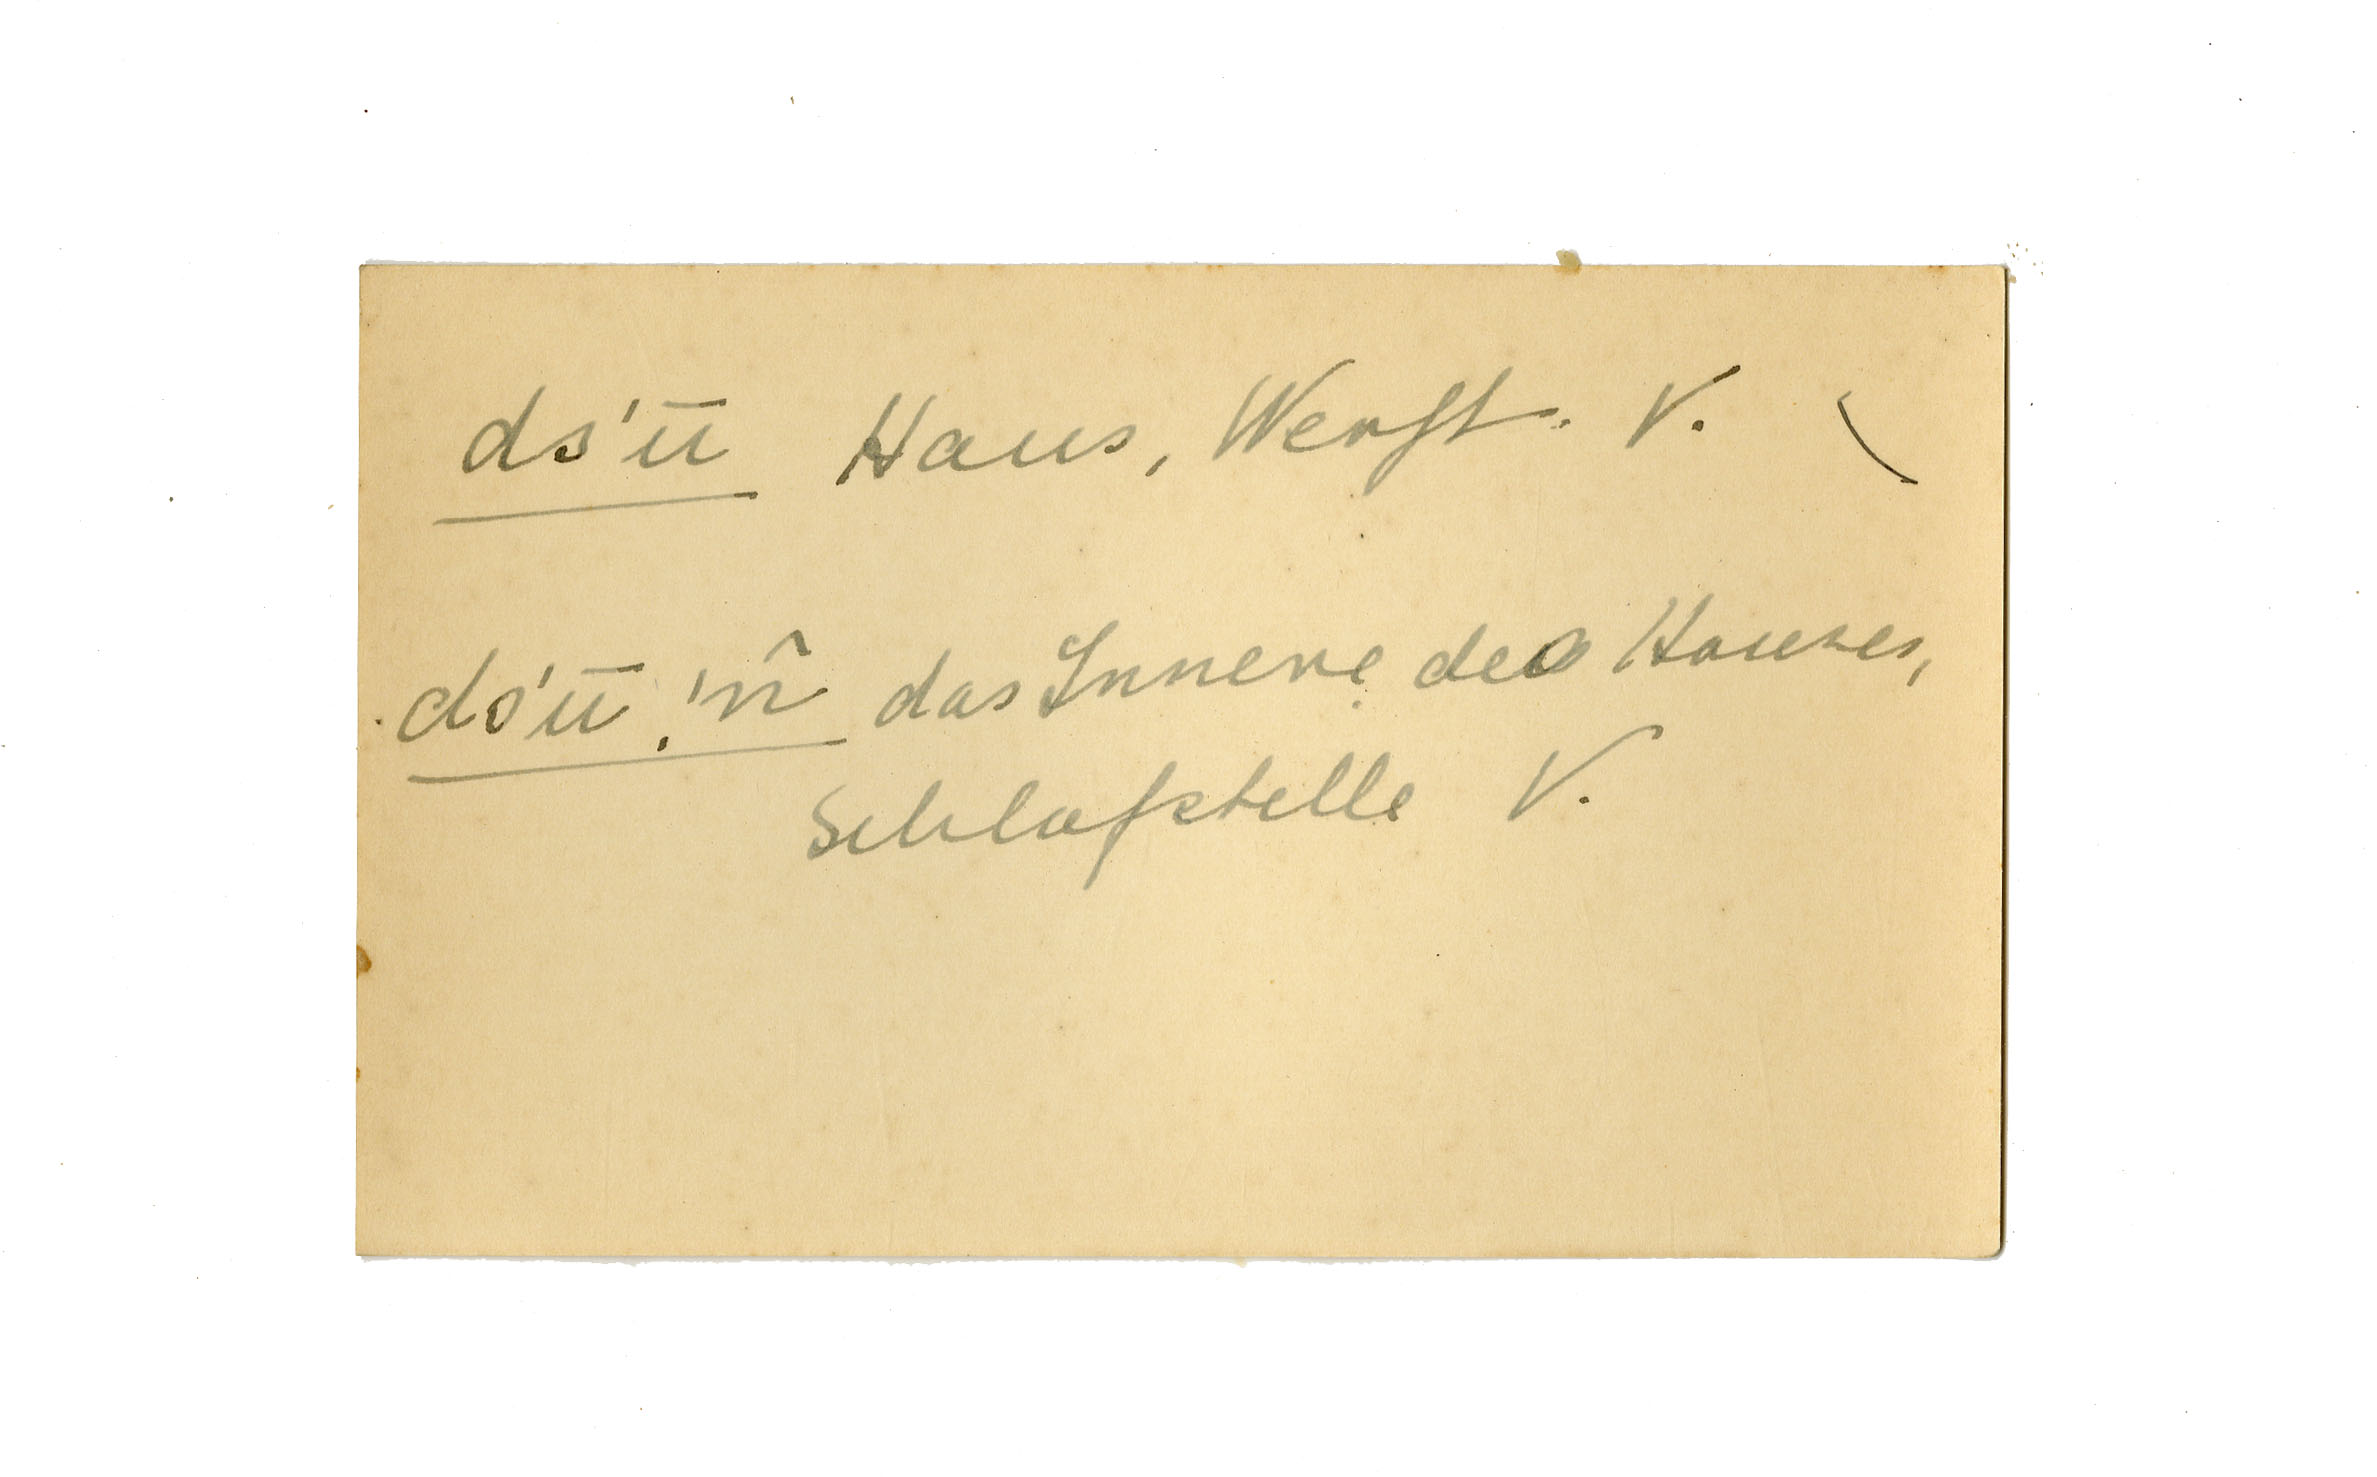 ds'ū Haus, Werft. V. \
ds'ū !n̂ das Innere des Hauses,
Schlafstelle V.